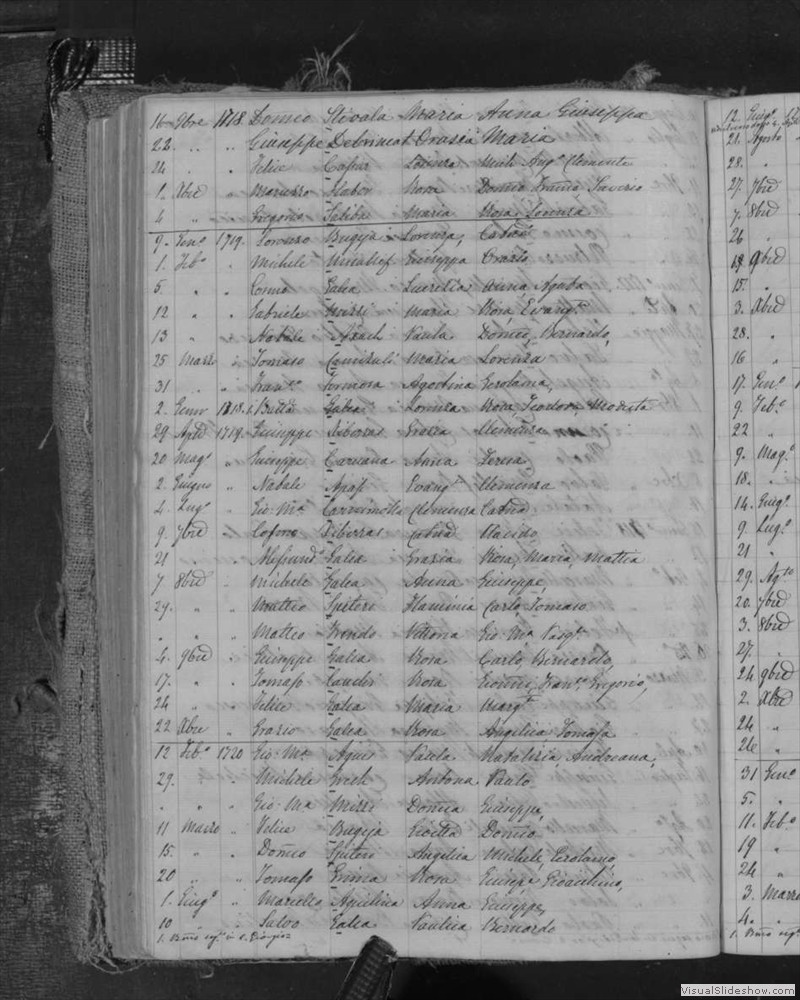 16 9bre 1718 Domco Stivala Maria Anna Giuseppa
22. " " Giuseppe Debrincat Orazia Maria
24 " " Felice Caspar Lorenza Mich. Ang.o Clemente
1. Xbre " Mariusso Sladov Rosa Domco Franco Saverio
4 " " Gregorio Saliba Maria Rosa Lorenza
9. Gen.o 1719. Lorenzo Bugeja Lorenza, Catna
1. Feb.o " Michele Muscat Giuseppa Orazio
5 " " Cosmo Galea Lucrezia Anna Agata
12 " " Gabriele Mizzi Maria Rosa, Evang.ta
13 " " Natale Axach Paula Domco, Bernardo,
25 Marzo " Tomaso Camizuli Maria Lorenza
31 " " Fran.co Formosa Agostina Gerolama,
2. Genro 1718. Batta Galea Lorenza Rosa, Teodora Modesta
29 Aple 1719. Giuseppe Ziberras Grazia Clemenza
20 Mag.o " Giuseppe Caruana Anna Teresa
2. Giugno " Natale Apap Evang.ta Clemenza
4. Lug.o " Gio. Ma. Clemenza Catna
9. 7bre " Ziberras Catna Placido
21 " " Galea Grazia Rosa, Maria, Mattea
7 8bre " Michele Galea Anna Giuseppe,
27. " " Matteo Spiteri Flaminia Carlo, Tomaso
" " " Matteo Vittoria Gio. Ma. Pasq.e
4. 9bre " Giuseppe Galea Rosa Carlo, Bernardo,
17. " " Tomaso Rosa Fran.co, Gregorio,
24 " " Felice Galea Maria Marg.ta
22 Xbre " Grazio Galea Rosa Angelica Tomasa
12 Feb.o 1720 Gio. Ma. Agius Paula Natalizia Andreana,
29. " " Michele Grech Antona Paulo
" " " Gio. Ma Mizzi Domca Giuseppe,
11 Marzo " Felice Bugeja Domco
15. " " Domco Spiteri Angelica Michele, Gerolamo,
20 " " Tomaso Grima Rosa Giusepe Gioachino,
1. Giug.o " Marcello Aquilina Anna Giuseppe,
10 " " Salvo Galea Paulica Bernardo
12. Giug.o
21. Agosto
28. "
27. 7bre
7. 8bre
26 "
13 9bre
15. "
3. Xbre
28. "
16 "
17. Gen.o
9. Feb.o
22 "
9. Mag.o
18. "
14. Giug.o
9. Lug.o
21 "
29. Ag.to
20. 7bre
3. 8bre
27. "
24 9bre
2. Xbre
24 "
26 "
31 Gen.o
5. "
11. Feb.o
19 "
24 "
3. Marzo
4. "
VisualSlideshow.com